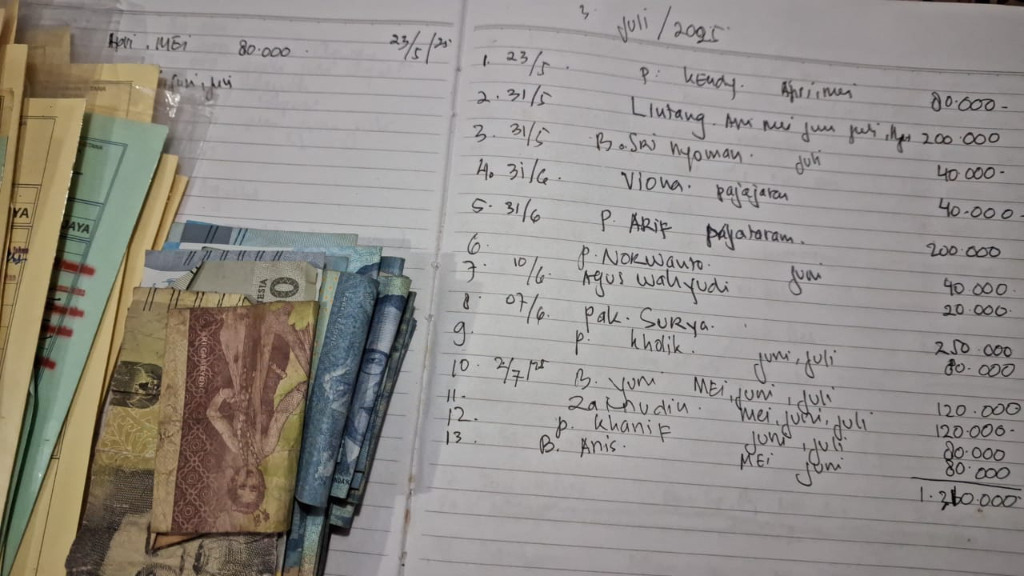 MEI 80.000 23/5/25
juni, juli
3 juli / 2025
1. 23/5 P. KENdy. April, mei 80.000-
2. 31/5 Lintang. Apr mei jun juli, Agu 200.000
3. 31/5 B. SRi Nyoman. juli 40.000-
4. 31/6 Viona. pajajaran 40.000-
5. 31/6 P. ARIF pajajaran. 200.000
6. P. NORWANTO. juni 40.000.
7. 10/6. Agus Wahyudi 20.000
8. 07/6. pak. SURYA. 250.000
9. P. kholik. juni, juli 80.000
10. 2/7/25 B. yuni MEi, juni, juli 120.000
11. Zaenudin. mei, juni, juli 120.000-
12. p. khanif juni, juli 80.000
13. B. Anis. MEi juni 80.000
1.310.000
JAYA
JAYA